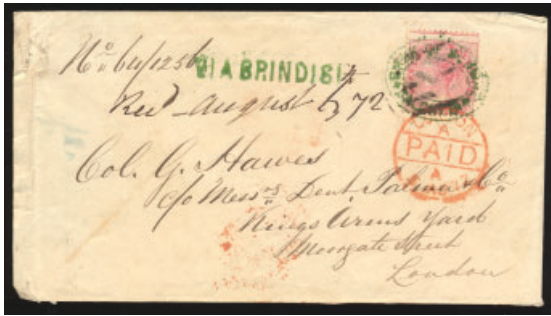 No 64/1256
VIA BRINDISI
Recd August 6/72
LONDON
A
PAID
A
Col. G. Hawes
c/o Messrs Dent, Palmer & Co
Kings Arms Yard
Moorgate Street
London